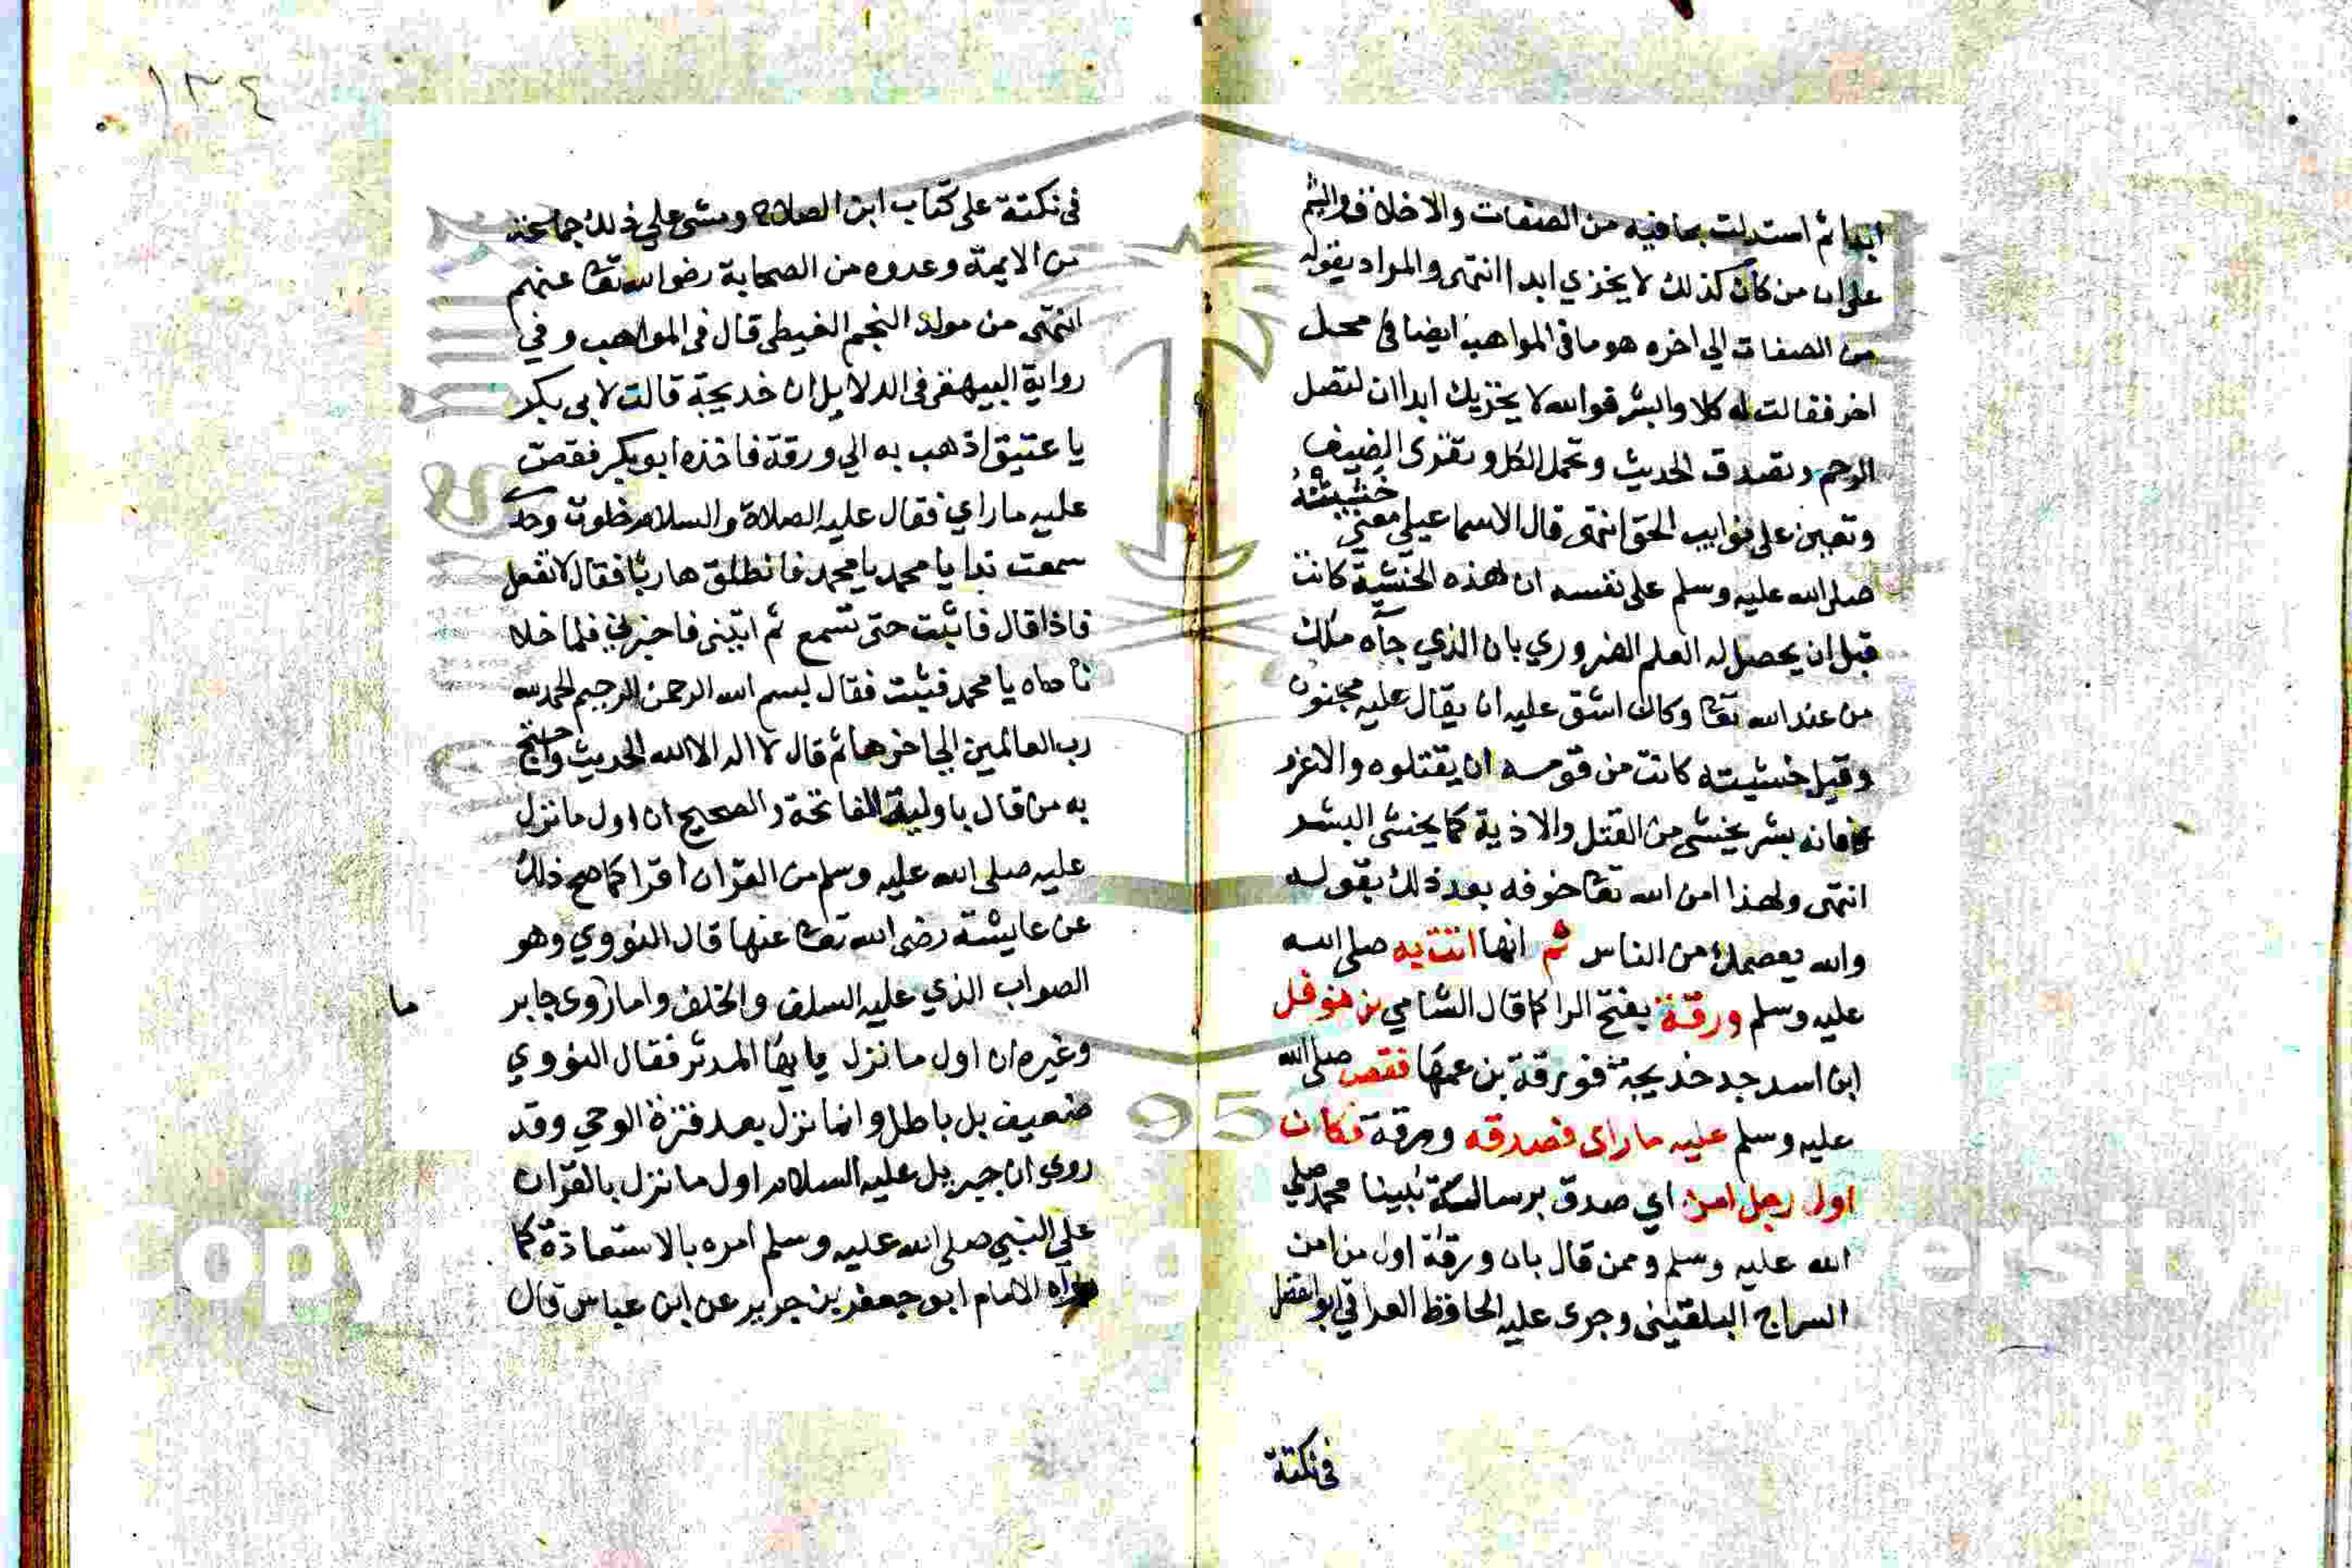 ابدا ثم استدلت بما فيه من الصفات والاخلاق والشيم
على ان من كان كذلك لا يخزي ابدا انتهى والمراد بقوله
من الصفات الي اخره هو ما في المواهب ايضا في محل
اخر فقالت له كلا والبشر فوالله لا يخزيك ابدا ان لتصل
الرحم وتصدق الحديث وتحمل الكل وتقرى الضيف
وتعين على نوايب الحق انتهى قال الاسماعيلي معنى خشيته
صلى الله عليه وسلم على نفسه ان هذه الخشية كانت
قبل ان يحصل له العلم الضروري بان الذي جآه ملك
من عند الله تعا وكان اشق عليه ان يقال عليه مجنون
وقيل خشيته كانت من قومه ان يقتلوه والاغرر
فانه بشر يخشى من القتل والاذية كما يخشى البشر
انتهى ولهذا امن الله تعا خوفه بعد ذلك بقوله
والله يعصمك من الناس ثم انها اتت به صلى الله
عليه وسلم ورقة بفتح الرا كما قال الشامي بن نوفل
ابن اسد جد خديجة فورقة بن عمها فقص صلى الله
عليه وسلم عليه ما راى فصدقه ورقة فكان
اول رجل امن اي صدق برسالة نبينا محمد صلى
الله عليه وسلم وممن قال بان ورقة اول من امن
السراج البلقينى وجرى عليه الحافظ العراقي ابو الفضل
في نكتة
١٣٤
في نكتة على كتاب ابن الصلاح ومشى على ذلك جماعة
من الايمة وعدوه من الصحابة رضوالله تعا عنهم
انتهى من مولد النجم الغيطى قال في المواهب وفي
رواية البيهقى في الدلايل ان خديجة قالت لابي بكر
يا عتيق اذهب به الي ورقة فاخذه ابو بكر فقص
عليه ما راي فقال عليه الصلاة والسلام خلوت وحدي
سمعت ندا يا محمد يا محمد فانطلق هاربا فقال لا تفعل
فاذا قال فاثبت حتى تسمع ثم ايتنى فاخبرني فلما خلا
ناداه يا محمد فثبت فقال بسم الله الرحمن الرحيم الحمد لله
رب العالمين الي اخرها ثم قال لا اله الا الله الحديث واحتج
به من قال باولية الفاتحة والصحيح ان اول ما نزل
عليه صلى الله عليه وسلم من القران اقرا كما صح ذلك
عن عايشة رضى الله تعا عنها قال النووي وهو
الصواب الذي عليه السلف والخلف واما روى جابر
ما
وغيره ان اول ما نزل يا يها المدثر فقال النووي
ضعيف بل باطل وانما نزل بعد فترة الوحي وقد
روي ان جبريل عليه السلام اول ما نزل بالقران
علي النبي صلى الله عليه وسلم امره بالاستعاذة كما
رواه الامام ابو جعفر بن جرير عن ابن عباس قال